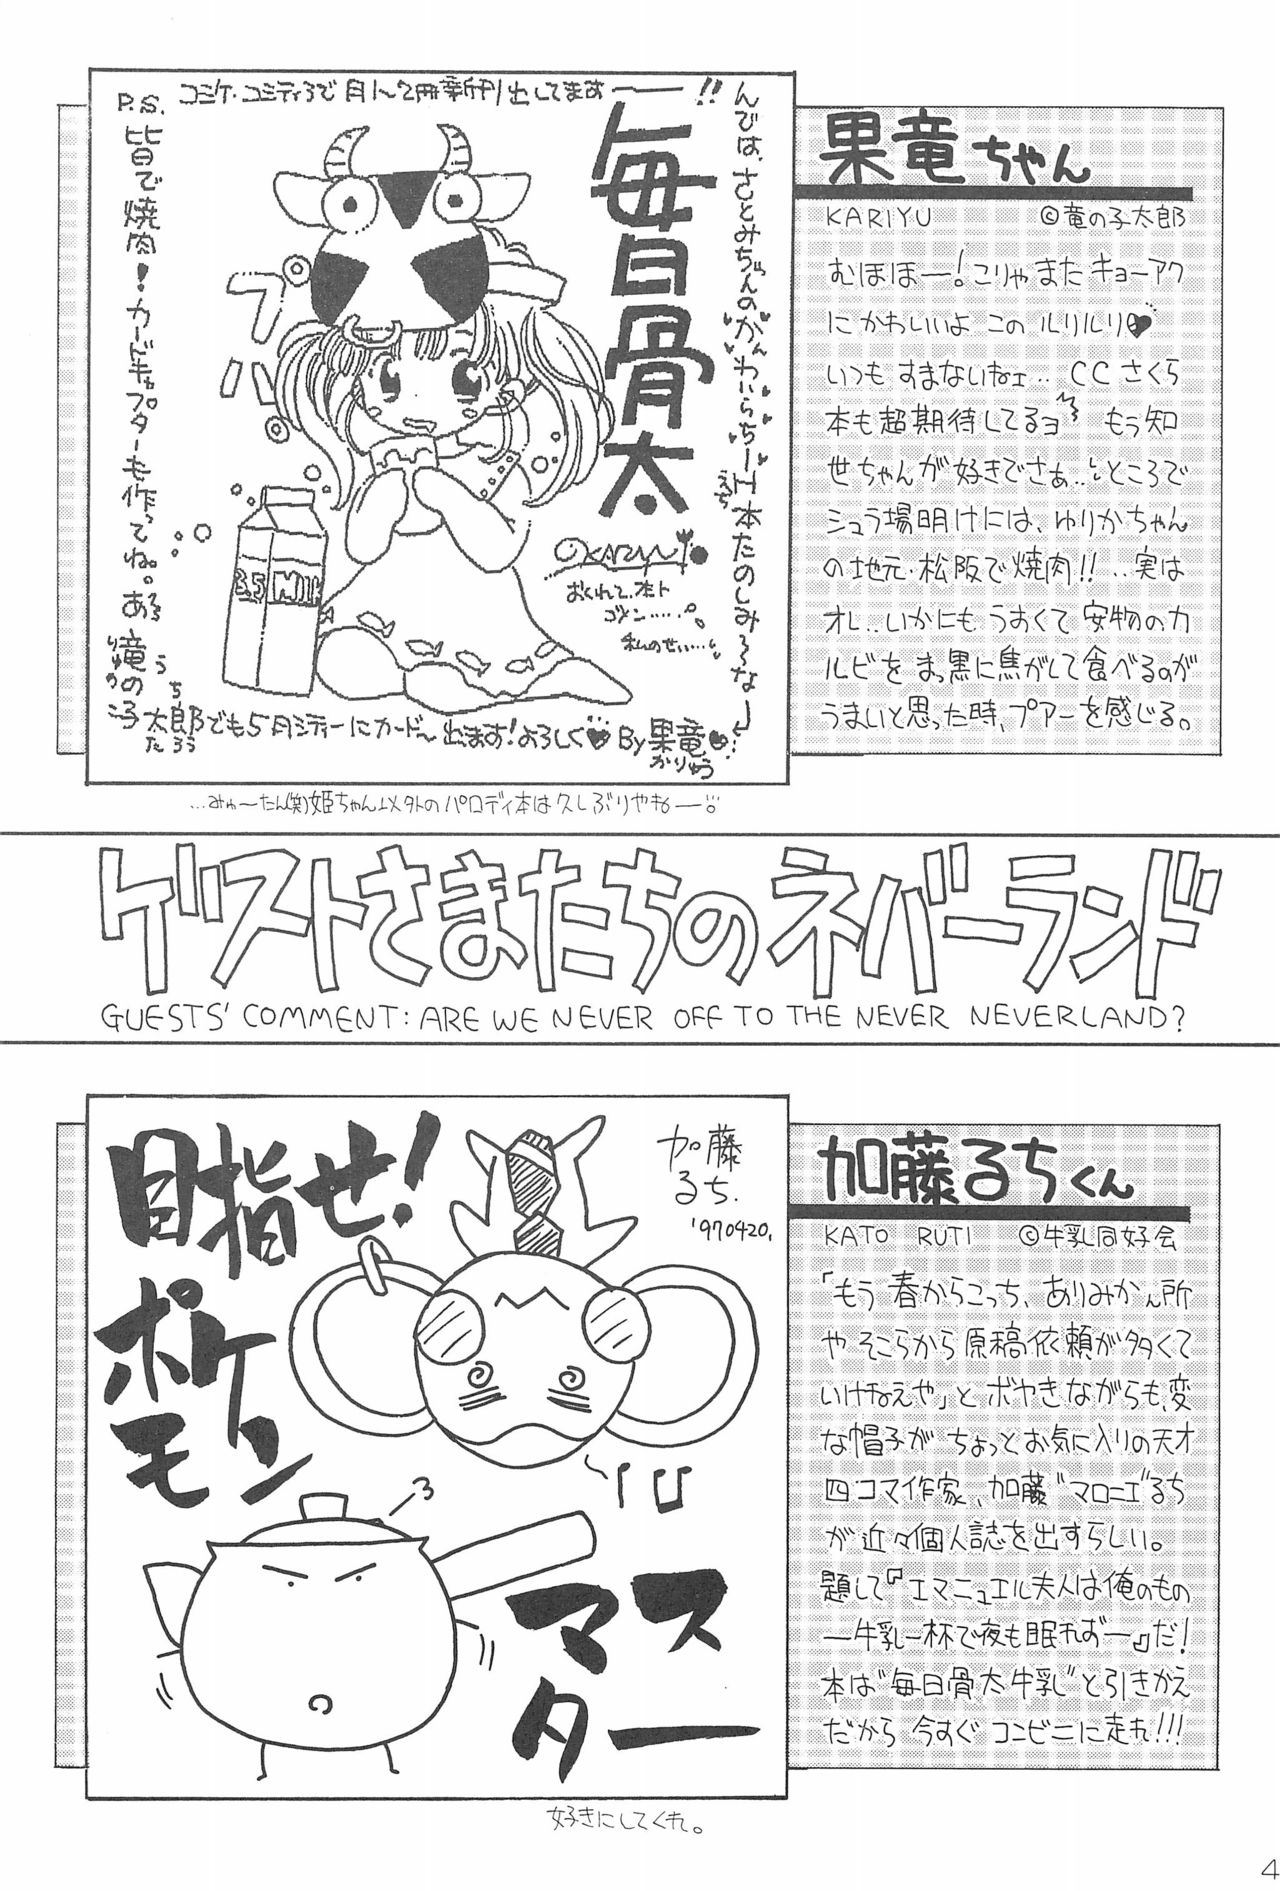 コミケ・コミティアで月1〜2冊新刊出してまあす――!!
毎日骨太
P.S.
皆で焼肉!カードキャプターも作ってね。あ、
竜の子太郎でも5月シティーにカード〜出ます!よろしく♥ By果竜♥
りゅうのこたろう
かりゅう
プハ
3.5 MILK
KARYU
おくれて、ホント
ゴメン……
私のせい…
えっち
…みゅ〜たん(笑)姫ちゃん以外のパロディ本は久しぶりやね――
果竜ちゃん
KARIYU ©竜の子太郎
むほほー!こりゃまたキョーアク
にかわいいよ このルリルリ♥
いつもすまないねェ… CCさくら
本も超期待してるヨ もう知
世ちゃんが好きでさぁ…ところで
シュラ場明けには、ゆりかちゃん
の地元・松阪で焼肉!!…実は
オレ…いかにもうすくて安物のカ
ルビをまっ黒に焦がして食べるのが
うまいと思った時、プアーを感じる。
ゲストさまたちのネバーランド
GUESTS' COMMENT: ARE WE NEVER OFF TO THE NEVER NEVERLAND?
目指せ!
ポケモン
マスター
加藤
るち.
'970420.
好きにしてくれ。
加藤るちくん
KATO RUTI ©牛乳同好会
「もう春からこっち、ありみかん所
やそこらから原稿依頼が多くて
いけねえや」とボヤきながらも、変
な帽子がちょっとお気に入りの天才
四コマ作家、加藤"マロニエ"るち
が近々個人誌を出すらしい。
題して『エマニュエル夫人は俺のもの
―牛乳一杯で夜も眠れず―』だ!
本は"毎日骨太牛乳"と引きかえ
だから今すぐコンビニに走れ!!!
4